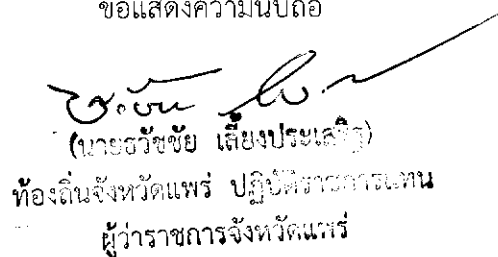 ขอแสดงความนับถือ
(นายธวัชชัย เลี้ยงประเสริฐ)
ท้องถิ่นจังหวัดแพร่ ปฏิบัติราชการแทน
ผู้ว่าราชการจังหวัดแพร่